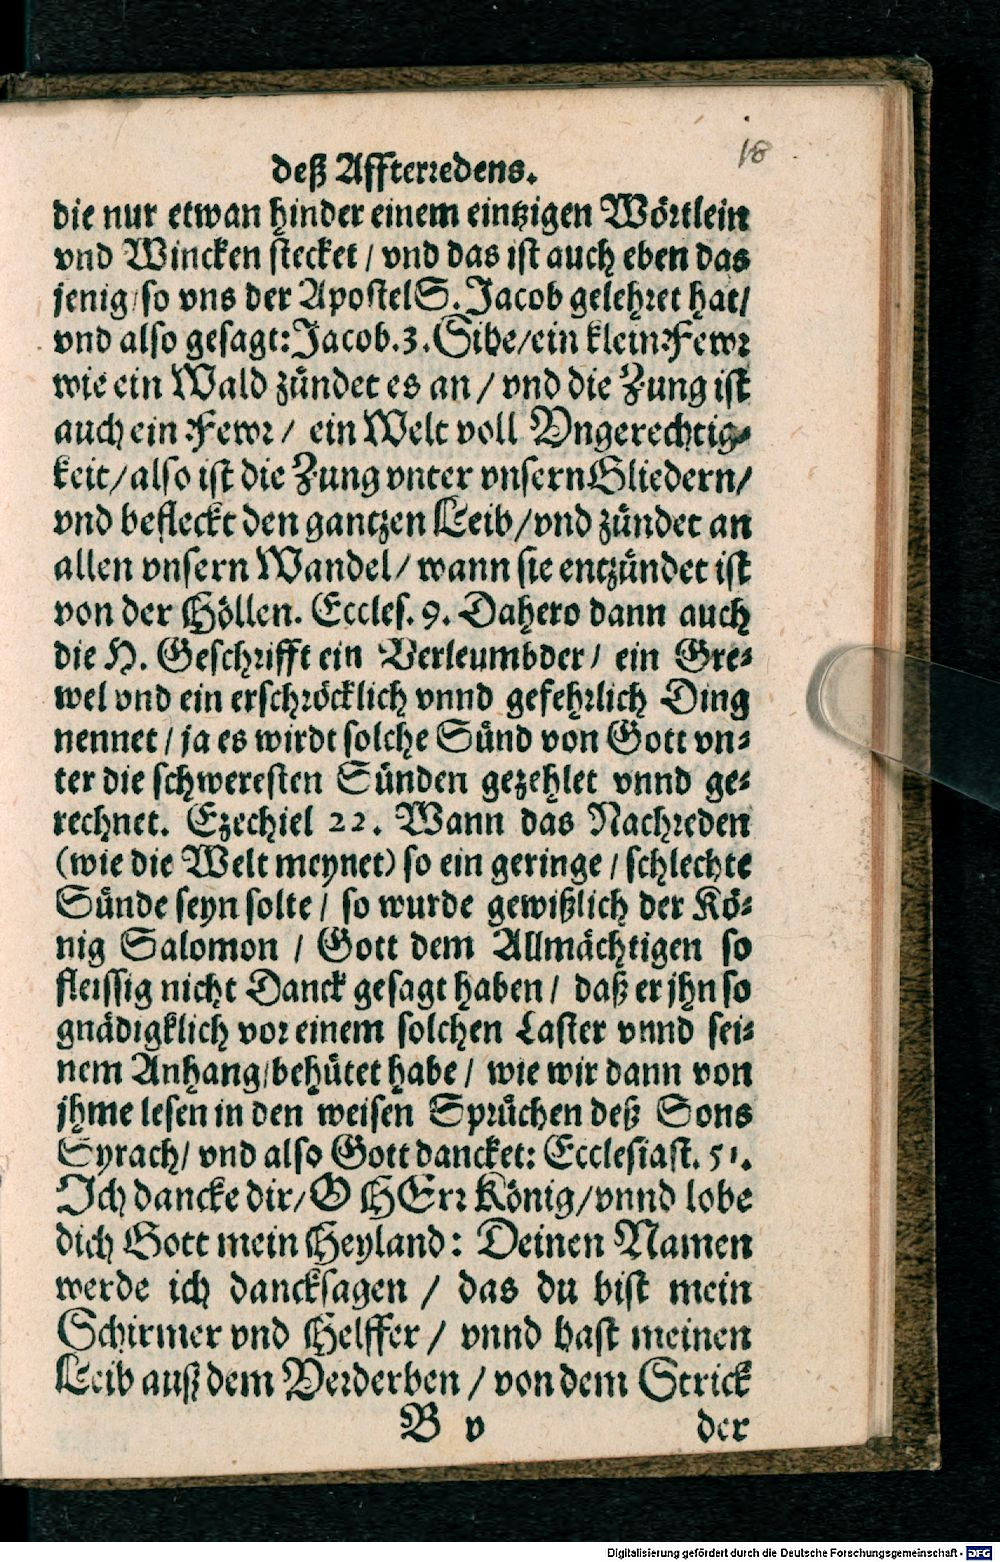 18
deß Affterredens.
die nur etwan hinder einem eintzigen Wörtlein
vnd Wincken stecket / vnd das ist auch eben das
jenig / so vns der Apostel S. Jacob gelehret hat /
vnd also gesagt: Jacob. 3. Sihe / ein klein Fewr
wie ein Wald zündet es an / vnd die Zung ist
auch ein Fewr / ein Welt voll Vngerechtig⸗
keit / also ist die Zung vnter vnsern Gliedern /
vnd befleckt den gantzen Leib / vnd zündet an
allen vnsern Wandel / wann sie entzündet ist
von der Höllen. Eccles. 9. Dahero dann auch
die H. Geschrifft ein Verleumbder / ein Gre⸗
wel vnd ein erschröcklich vnnd gefehrlich Ding
nennet / ja es wirdt solche Sünd von Gott vn⸗
ter die schweresten Sünden gezehlet vnnd ge⸗
rechnet. Ezechiel 22. Wann das Nachreden
(wie die Welt meynet) so ein geringe / schlechte
Sünde seyn solte / so wurde gewißlich der Kö⸗
nig Salomon / Gott dem Allmächtigen so
fleissig nicht Danck gesagt haben / daß er jhn so
gnädigklich vor einem solchen Laster vnnd sei⸗
nem Anhang / behütet habe / wie wir dann von
jhme lesen in den weisen Sprüchen deß Sons
Syrach / vnd also Gott dancket: Ecclesiast. 51.
Ich dancke dir / O HErr König / vnnd lobe
dich Gott mein Heyland: Deinen Namen
werde ich dancksagen / das du bist mein
Schirmer vnd Helffer / vnnd hast meinen
Leib auß dem Verderben / von dem Strick
B v der
Digitalisierung gefördert durch die Deutsche Forschungsgemeinschaft - DFG